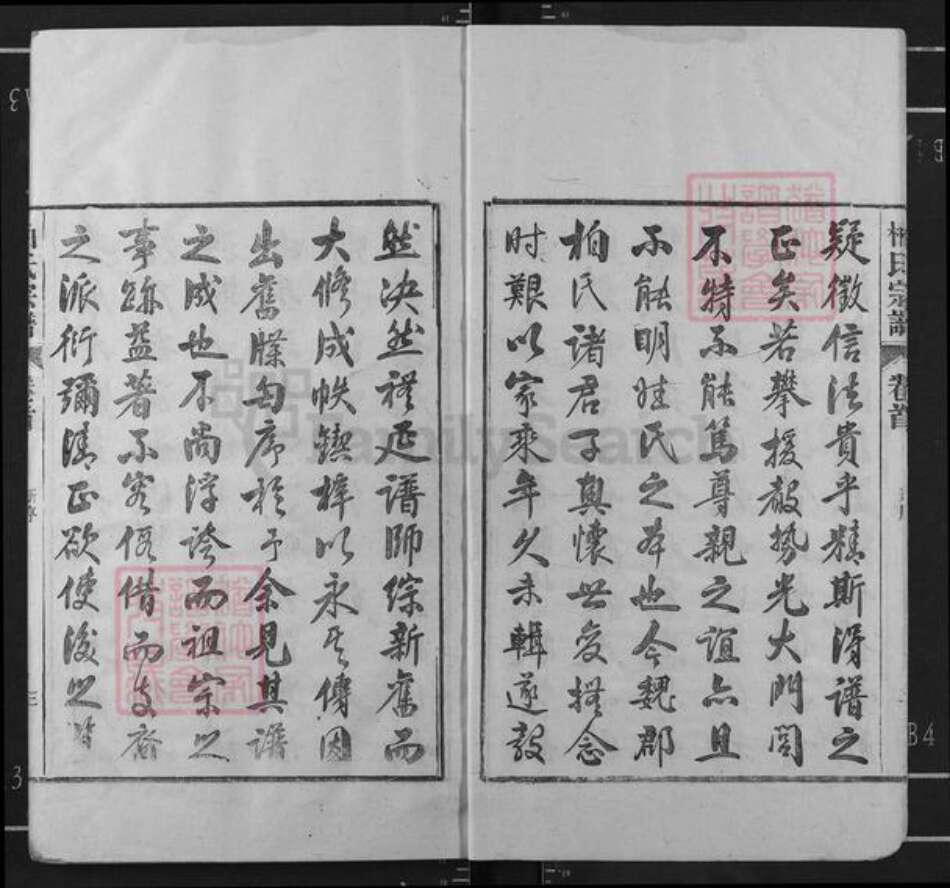 柏氏宗譜
卷首
疑徵信法貴乎精斯得譜之
正矣若攀援赦勢光大門閭
不特不能篤尊親之誼亦且
不能明姓氏之本也今魏郡
柏氏諸君子輿懷世變撫念
时艱以家乘年久未輯遂毅
然決然禮延譜師綜新舊而
大修成帙鋟梓以永其傳因
出舊牒匄序於予余見其譜
之成也不尚浮誇而祖宗之
事跡益著不容假借而支裔
之派衍彌清正欲使後之
三
FamilySearch